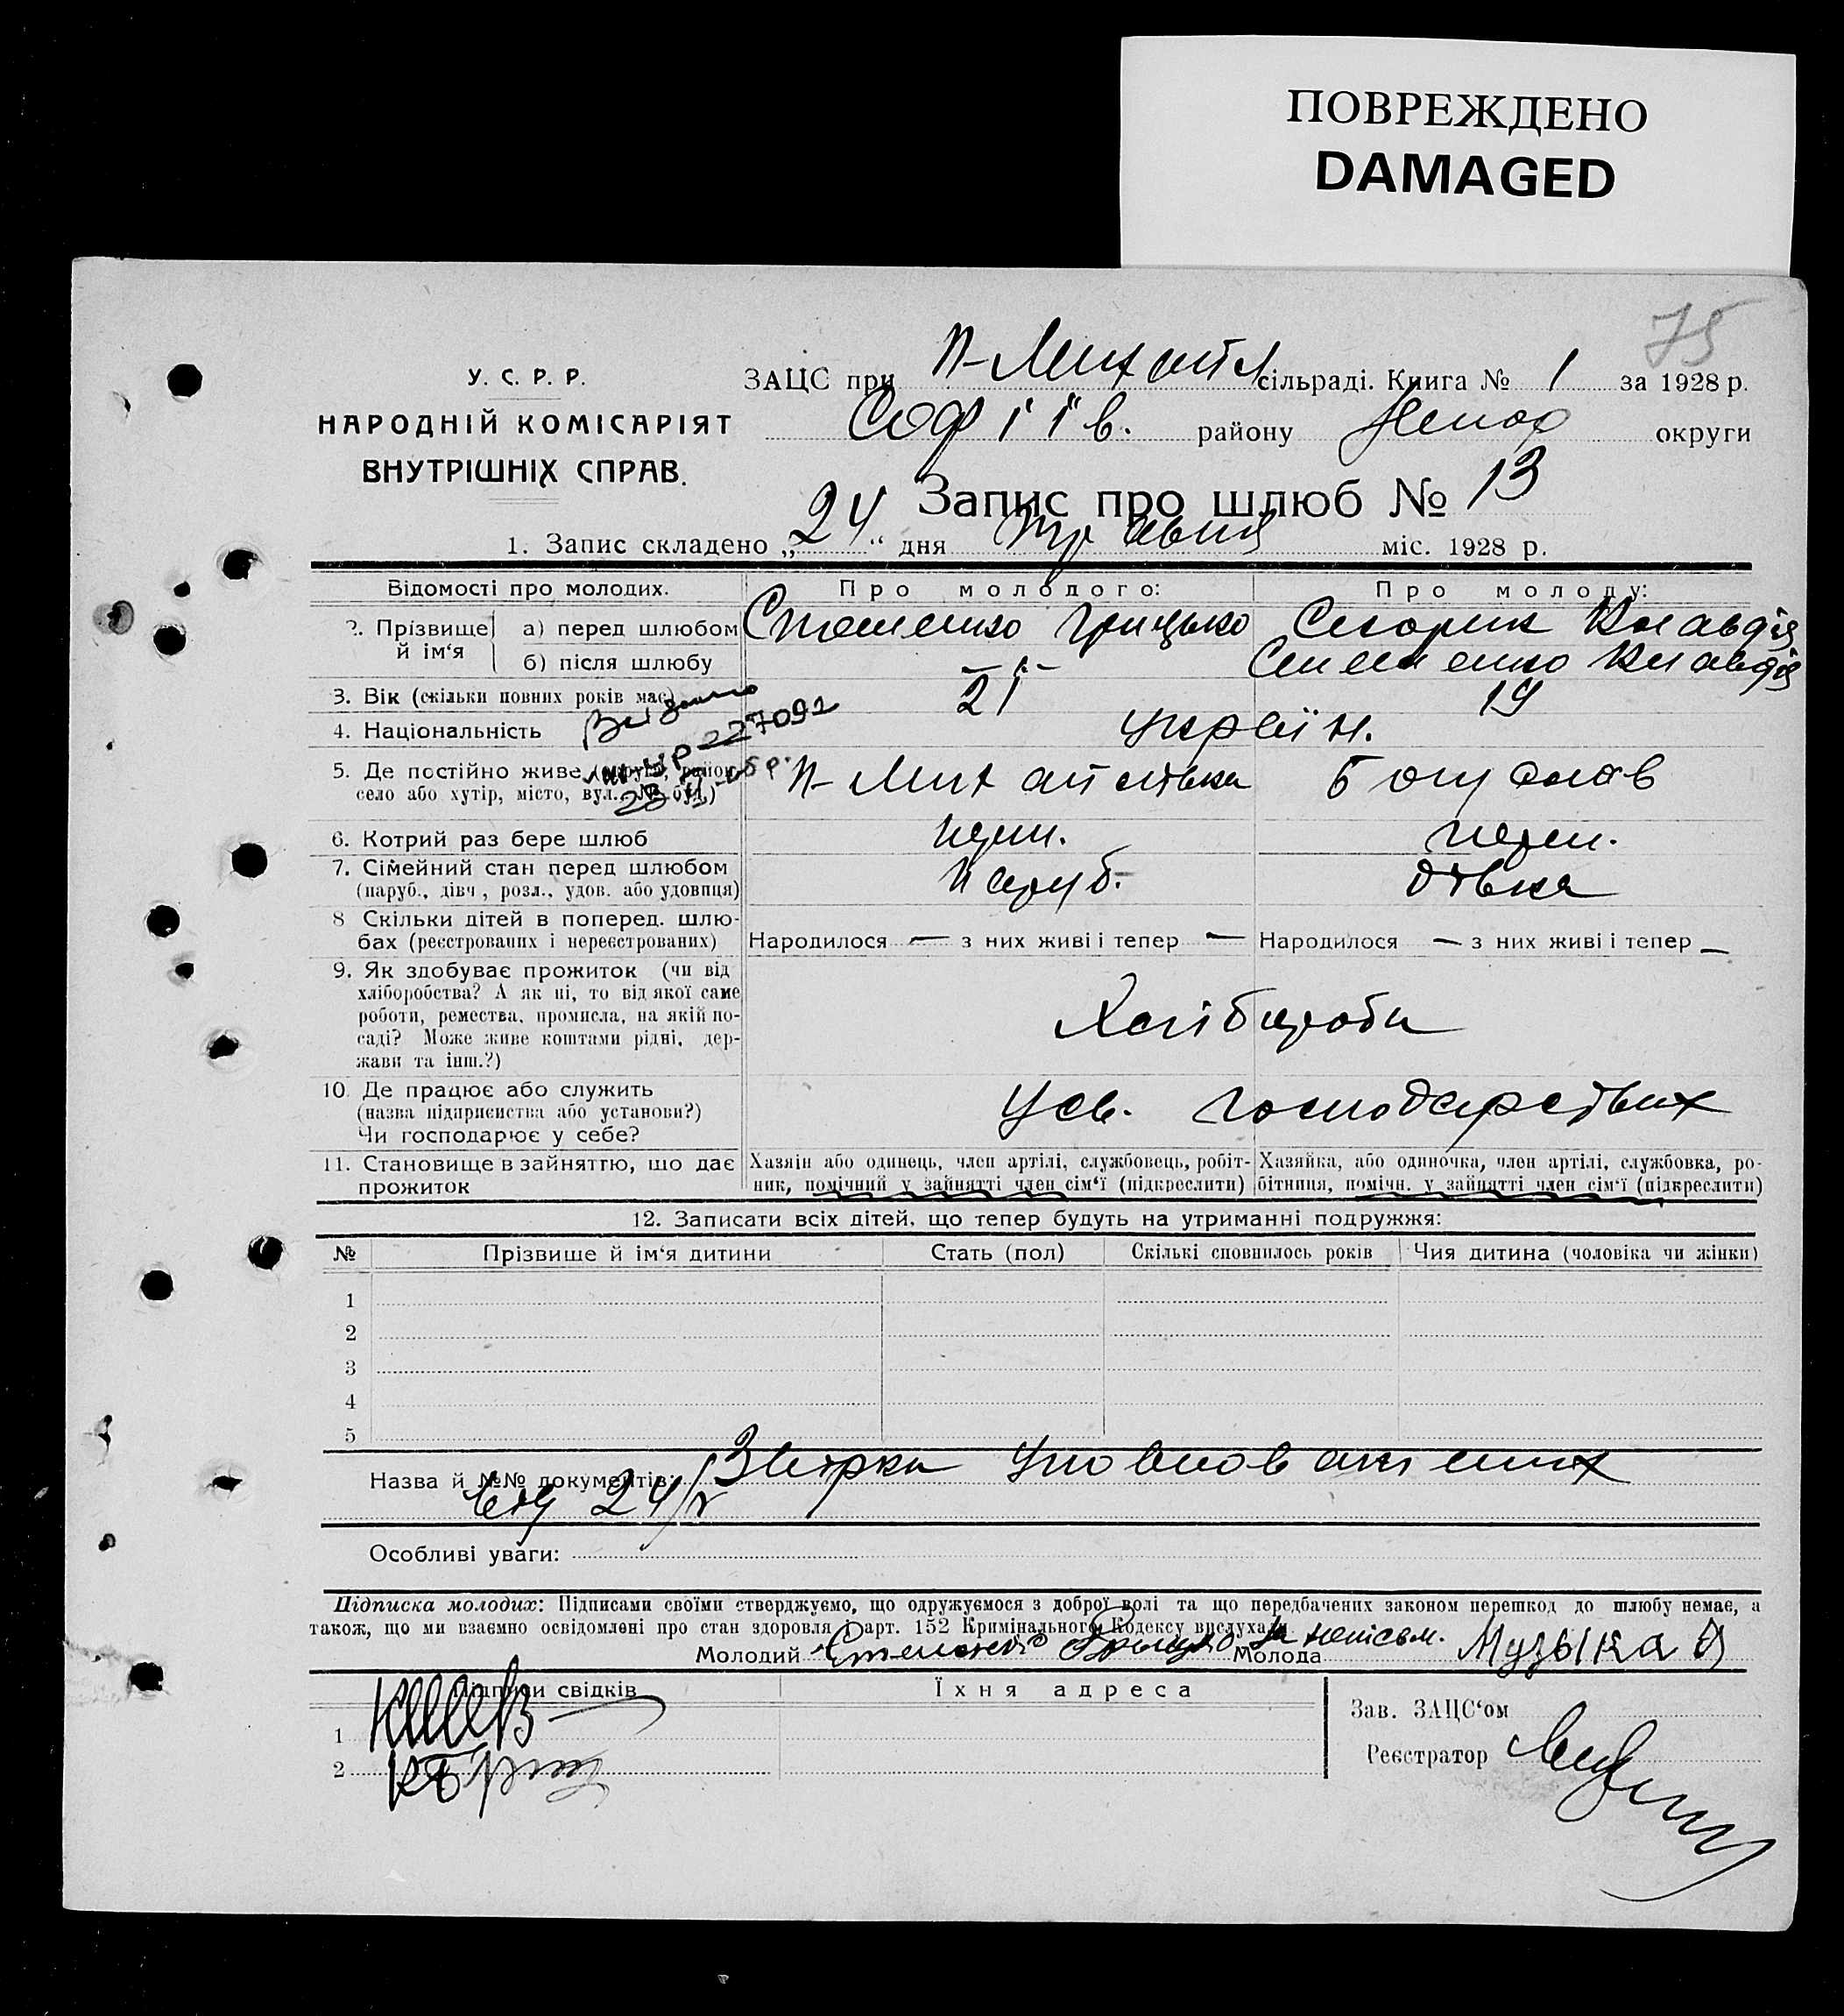 ПОВРЕЖДЕНО
DAMAGED
75
У. С. Р. Р.
НАРОДНІЙ КОМІСАРІЯТ
ВНУТРІШНІХ СПРАВ.
ЗАЦС при П-Михайл сільраді. Книга № 1 за 1928 р.
Софіїв. району округи
Запис про шлюб № 13
1. Запис складено „24“ дня травня міс. 1928 р.
Відомості про молодих. Про молодого: Про молоду:
2. Прізвище й ім‘я а) перед шлюбом Грицько Клавдія
б) після шлюбу -"- Клавдія
3. Вік (скільки повних років має) 21 19
4. Національність україн.
227092
5. Де постійно живе (округа, район, село або хутір, місто, вул., № буд.) П-Михайлівка
6. Котрий раз бере шлюб перш. перш.
7. Сімейний стан перед шлюбом паруб. дівка
(паруб., дівч., розл., удов. або удовиця)
8 Скільки дітей в поперед. шлю-
бах (реєстрованих і нереєстрованих) Народилося — з них живі і тепер — Народилося — з них живі і тепер —
9. Як здобуває прожиток (чи від
хліборобства? А як ні, то від якої саме
роботи, ремества, промисла, на якій по-
саді? Може живе коштами рідні, дер-
жави та інш.?)
Хлібороби
10. Де працює або служить
(назва підприємства або установи?)
Чи господарює у себе?
У св. господарствах
11. Становище в зайняттю, що дає Хазяїн або одинець, член артілі, службовець, робіт- Хазяйка, або одиночка, член артілі, службовка, ро-
прожиток ник, помічний у зайнятті член сім‘ї (підкреслити) бітниця, помічн. у зайнятті член сім‘ї (підкреслити)
12. Записати всіх дітей, що тепер будуть на утриманні подружжя:
№ Прізвище й ім‘я дитини Стать (пол) Скількі сповнилось років Чия дитина (чоловіка чи жінки)
1
2
3
4
5
Назва й №№ документів: Уповноважених
від 24/V
Особливі уваги:
Підписка молодих: Підписами своїми стверджуємо, що одружуємося з доброї волі та що передбачених законом перешкод до шлюбу немає, а
також, що ми взаємно освідомлені про стан здоровля і арт. 152 Кримінального Кодексу вислухали
Молодий Молода за неписьм. Музыка
Підписи свідків Їхня адреса
Зав. ЗАЦС‘ом
1
Реєстратор
2